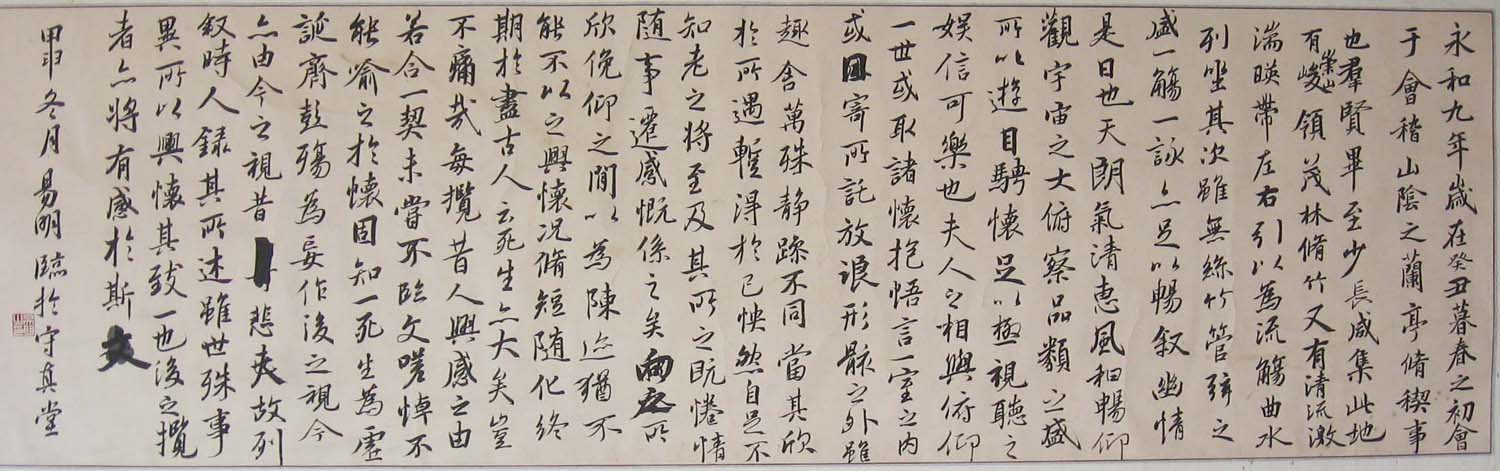 永和九年歲在癸丑暮春之初會
于會稽山陰之蘭亭脩稧事
也羣賢畢至少長咸集此地
有崇山峻領茂林脩竹又有清流激
湍暎帶左右引以為流觴曲水
列坐其次雖無絲竹管弦之
盛一觴一詠亦足以暢叙幽情
是日也天朗氣清惠風和暢仰
觀宇宙之大俯察品類之盛
所以遊目騁懷足以極視聽之
娛信可樂也夫人之相與俯仰
一世或取諸懷抱悟言一室之內
或因寄所託放浪形骸之外雖
趣舍萬殊靜躁不同當其欣
於所遇蹔得於己怏然自足不
知老之將至及其所之既惓情
隨事遷感慨係之矣向之所
欣俛仰之間以為陳迹猶不
能不以之興懷況脩短隨化終
期於盡古人云死生亦大矣豈
不痛哉每攬昔人興感之由
若合一契未嘗不臨文嗟悼不
能喻之於懷固知一死生為虛
誕齊彭殤為妄作後之視今
亦由今之視昔悲夫故列
叙時人錄其所述雖世殊事
異所以興懷其致一也後之攬
者亦將有感於斯文
甲申冬月易明臨於守真堂